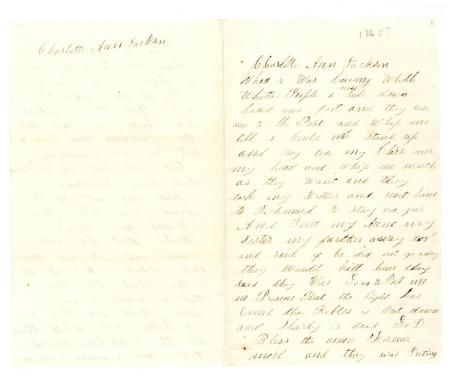 Charlotte Ann Jackson
1865?
Charlotte Ann Jackson
When I Was Living With
White People I was tide down
hand and foot and they tide
me to the Post and Whip me
till I Could not Stand up
and they tide my Close over
my head and whip me much
as they Want and they
took my Brother and sent him
to Richmond to stay one year
And Sent my Aunt my
Sister my farther away too
and said if he did not go away
they Would kill him they
said they Was Goin to Put me
in Prison But the light has
Come the Rebles is Put down
and Slavry is dead God
Bless the union Forever
more and they was